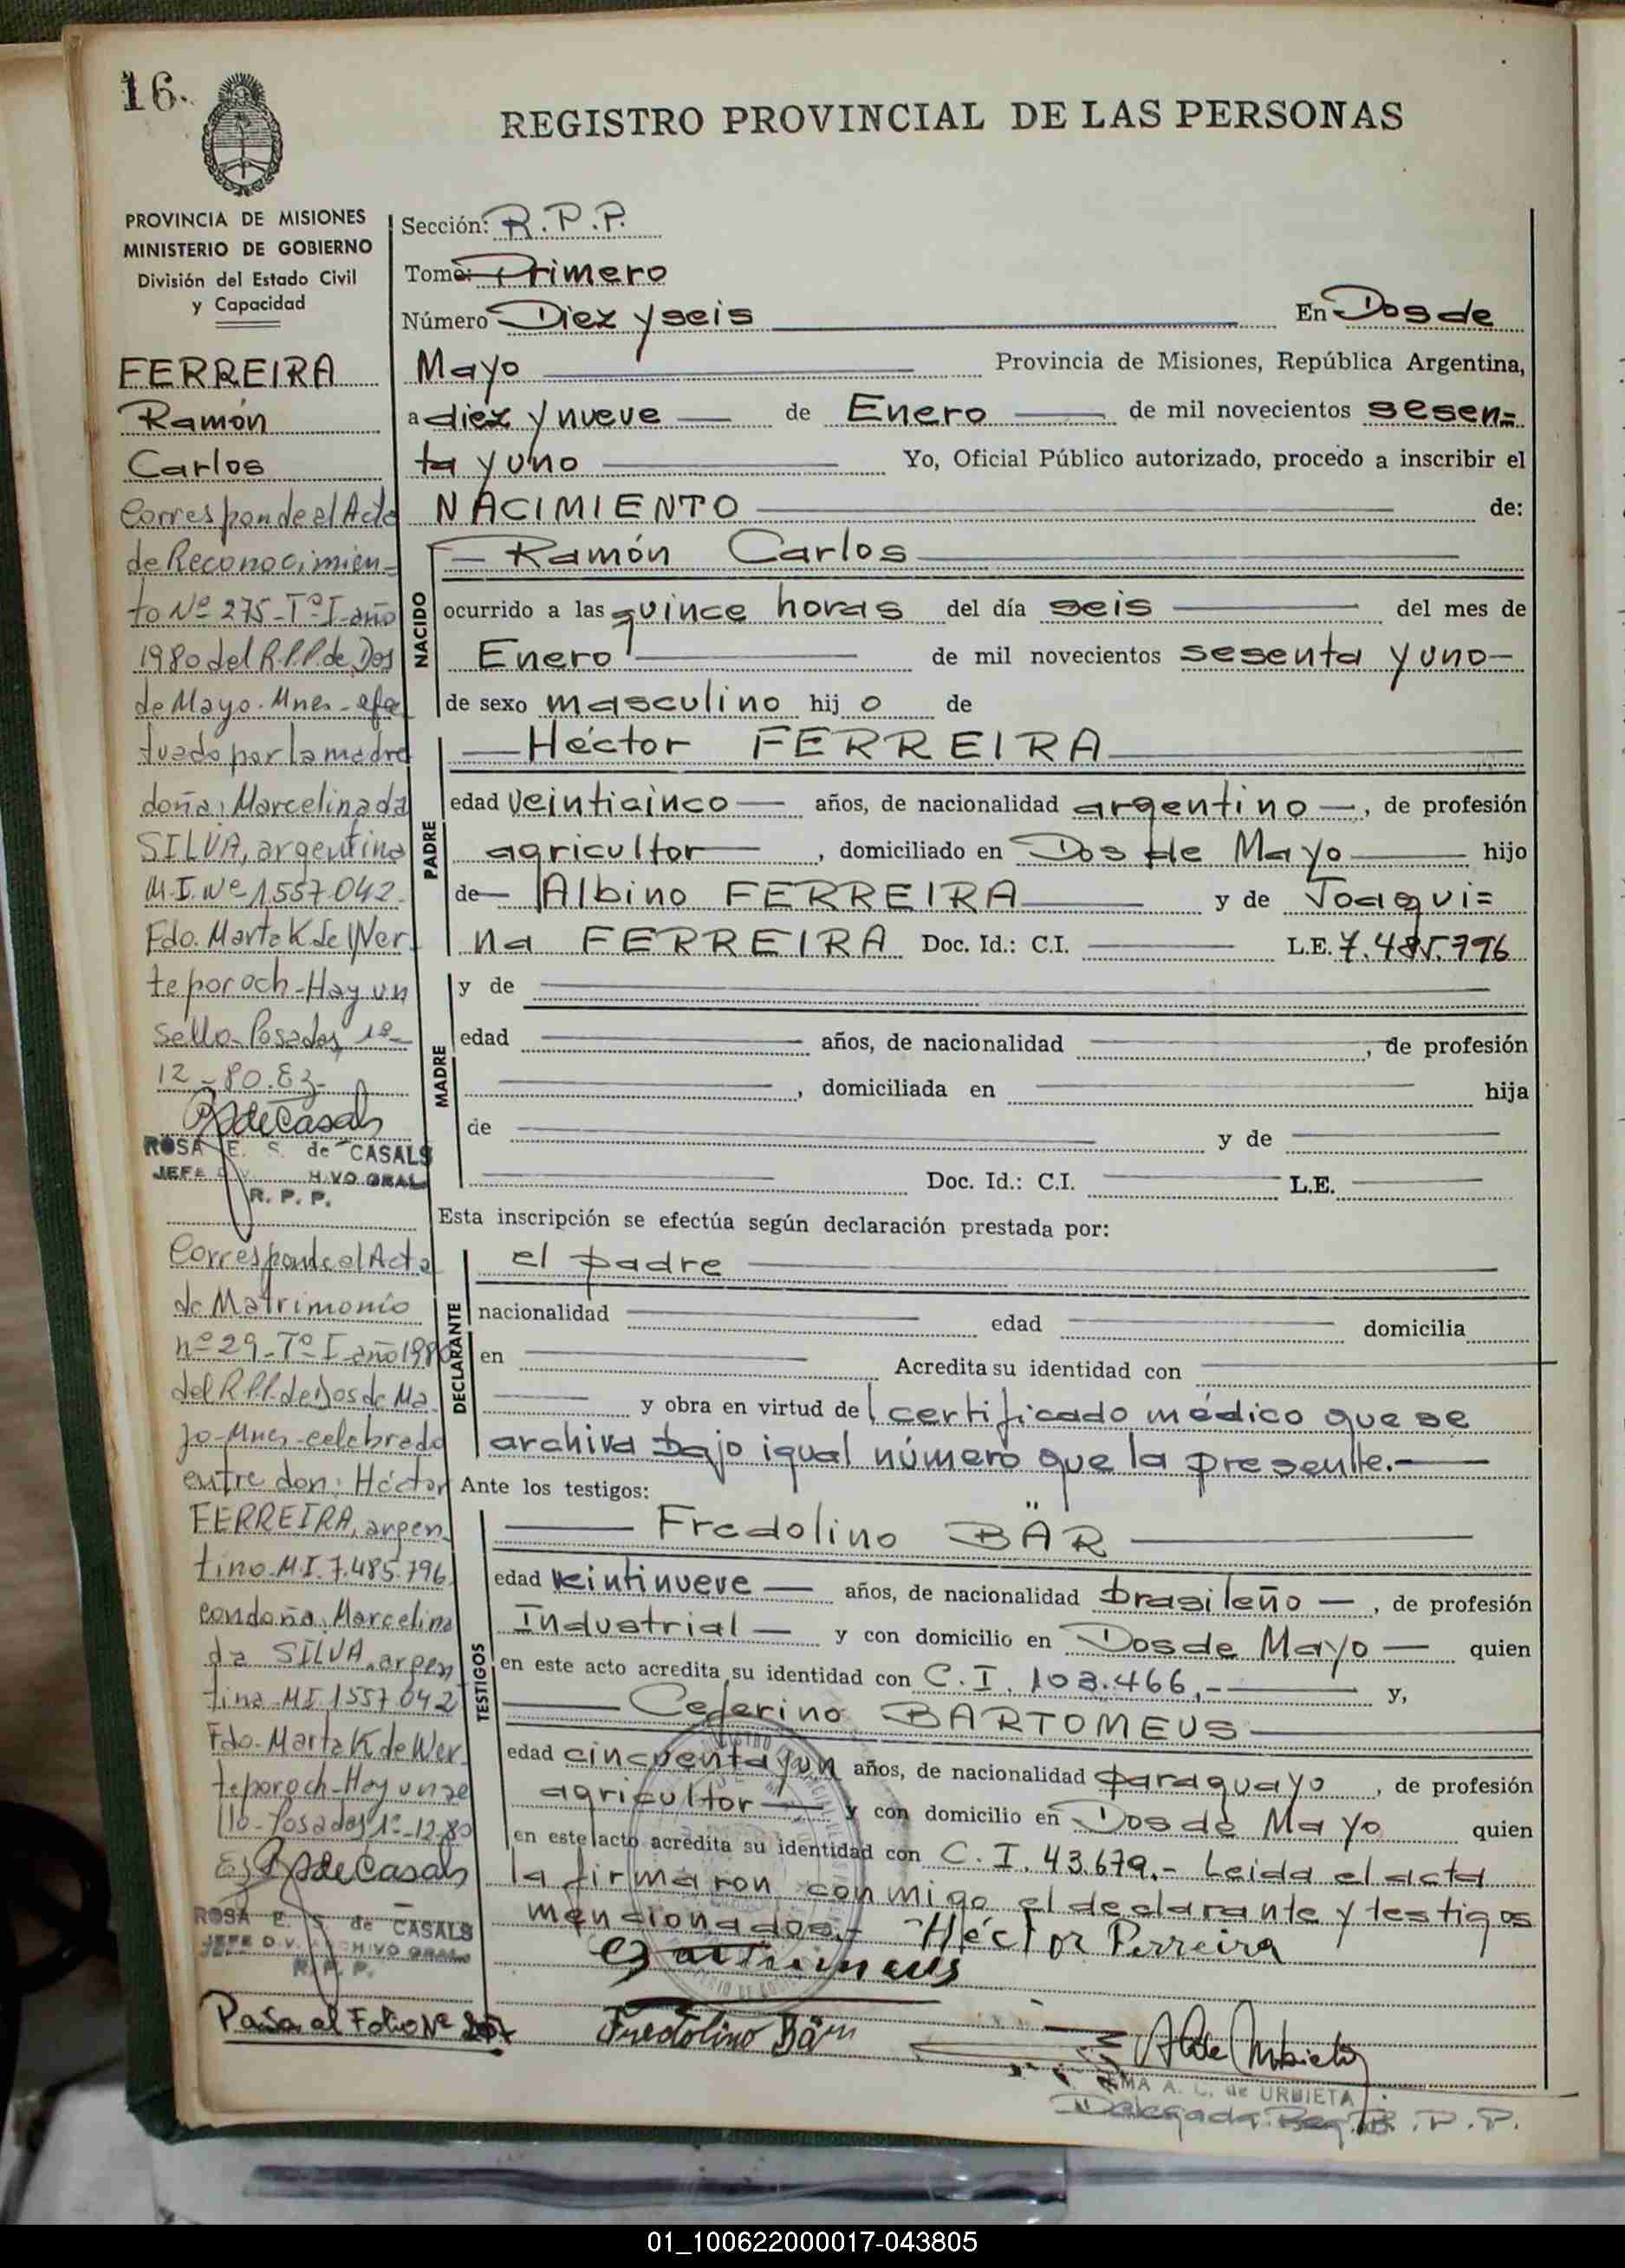 16.
REGISTRO PROVINCIAL DE LAS PERSONAS
PROVINCIA DE MISIONES
MINISTERIO DE GOBIERNO
División del Estado Civil
y Capacidad
FERREIRA
Ramón
Carlos
Corresponde al Acta
de Reconocimien-
to Nº 275-Tº I-año
1980 del R.P.P. de Dos
de Mayo-Mnes-efec
tuado por la madre
doña: Marcelina da
SILVA, argentina
M.I. Nº 1.557.042.
Fdo. Marta K de Wer-
teporoch-Hay un
sello-Posadas, 1º-
12-80.
ROSA E. S. de CASALS
R. P. P.
Corresponde al Acta
de Matrimonio
nº 29-Tº I-año 1980
del R.P.P. de Dos de Ma-
yo-Mnes-celebrado
entre don: Héctor
FERREIRA, argen-
tino-M.I. 7.485.796
con doña: Marcelina
da SILVA, argen
tina M.I. 1.557.042
Fdo. Marta K de Wer-
teporoch-Hay un se
llo-Posadas, 1º-12-80
ROSA E. S. de CASALS
Pasa al Folio Nº
Sección: R.P.P.
Tomo: Primero
Número Diez y seis En Dos de
Mayo Provincia de Misiones, República Argentina,
a diez y nueve de Enero de mil novecientos sesen=
ta y uno Yo, Oficial Público autorizado, procedo a inscribir el
NACIMIENTO de:
NACIDO
Ramón Carlos
ocurrido a las quince horas del día seis del mes de
Enero de mil novecientos sesenta y uno
de sexo masculino hij o de
PADRE
Héctor FERREIRA
edad veinticinco años, de nacionalidad argentino, de profesión
agricultor, domiciliado en Dos de Mayo hijo
de Albino FERREIRA y de Joaqui=
na FERREIRA Doc. Id.: C.I. L.E. 7.485.796
MADRE
y de
edad años, de nacionalidad , de profesión
, domiciliada en hija
de y de
Doc. Id.: C.I. L.E.
Esta inscripción se efectúa según declaración prestada por:
DECLARANTE
el padre
nacionalidad edad domicilia
en Acredita su identidad con
y obra en virtud del certificado médico que se
archiva bajo igual número que la presente.-
Ante los testigos:
TESTIGOS
Fredolino BÄR
edad veintinueve años, de nacionalidad brasileño, de profesión
Industrial y con domicilio en Dos de Mayo quien
en este acto acredita su identidad con C.I. 103.466.- y,
Ceferino BARTOMEUS
edad cincuenta y un años, de nacionalidad paraguayo, de profesión
agricultor y con domicilio en Dos de Mayo quien
en este acto acredita su identidad con C.I. 43.679.- Leida el acta
la firmaron conmigo el declarante y testigos
mencionados.- Héctor Ferreira
Fredolino Bär
A. C. de URBIETA
Delegada R.P.P.
01_100622000017-043805